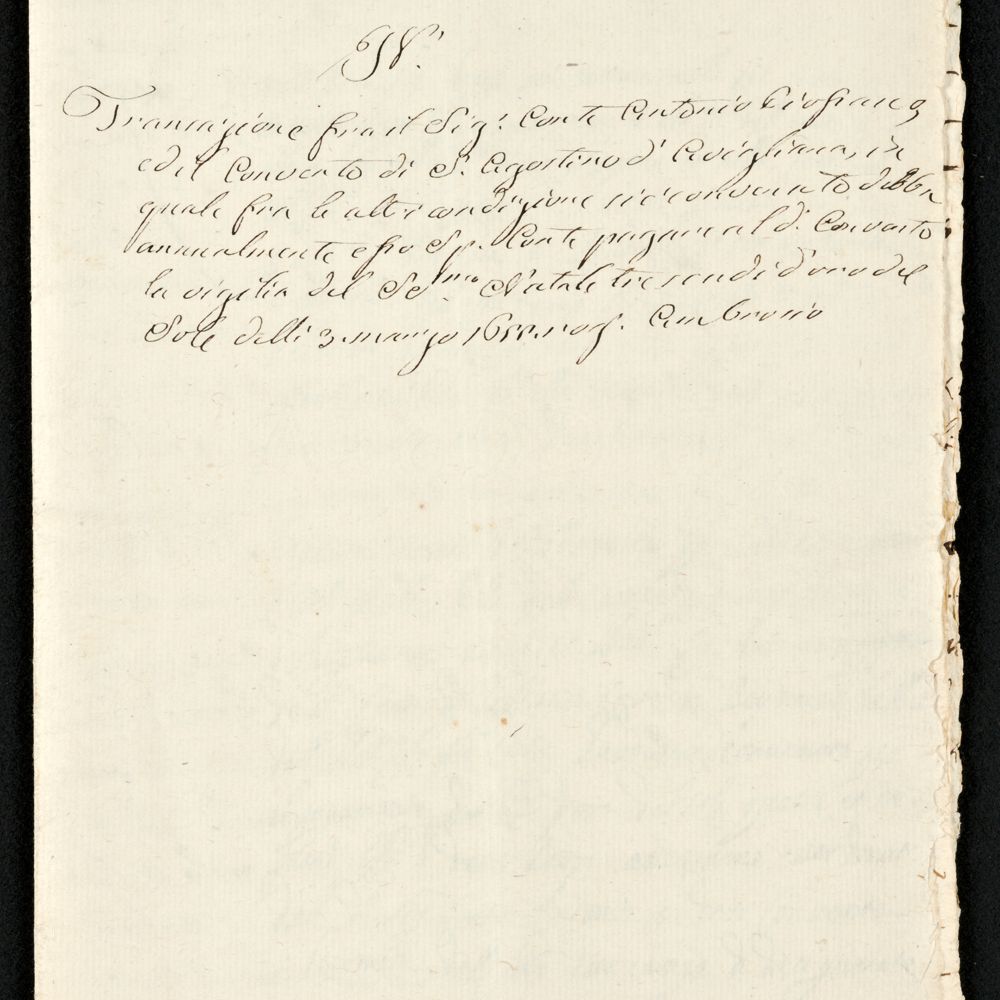 Transazione fra il Sig.r Conte Antonio
ed il Convento di S.t Agostino d'Avigliana, in
quale fra le altre condizione si è convenuto debba
annualmente esso Sig.r Conte pagare al d.o Convento
la vigilia del SS.mo Natale tre scudi d'oro del
Sole delli 3. marzo rog. Ambrosio